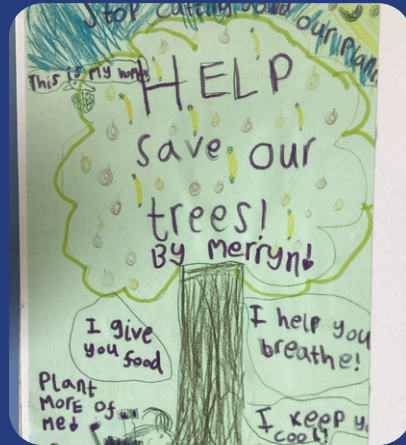 Stop cutting down our plan
This is my home
HELP
save our
trees!
By Merryn!
I give
you food
I help you
breathe!
Plant
More of
me!
I keep y
cool!